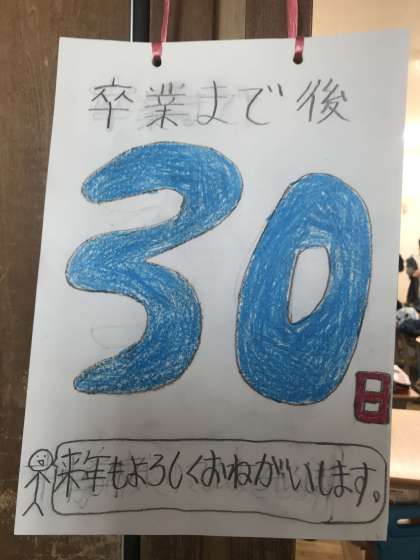 卒業まで後
30
日
来年もよろしくおねがいします。